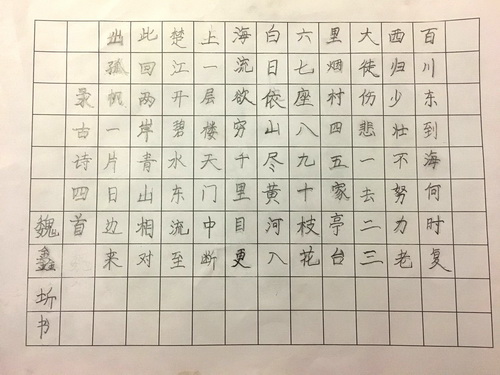 百川东到海何时复
西归少壮不努力老
大徒伤悲一去二三
里烟村四五家亭台
六七座八九十枝花
白日依山尽黄河入
海流欲穷千里目更
上一层楼天门中断
楚江开碧水东流至
此回两岸青山相对
出孤帆一片日边来
录古诗四首
魏鑫圻书